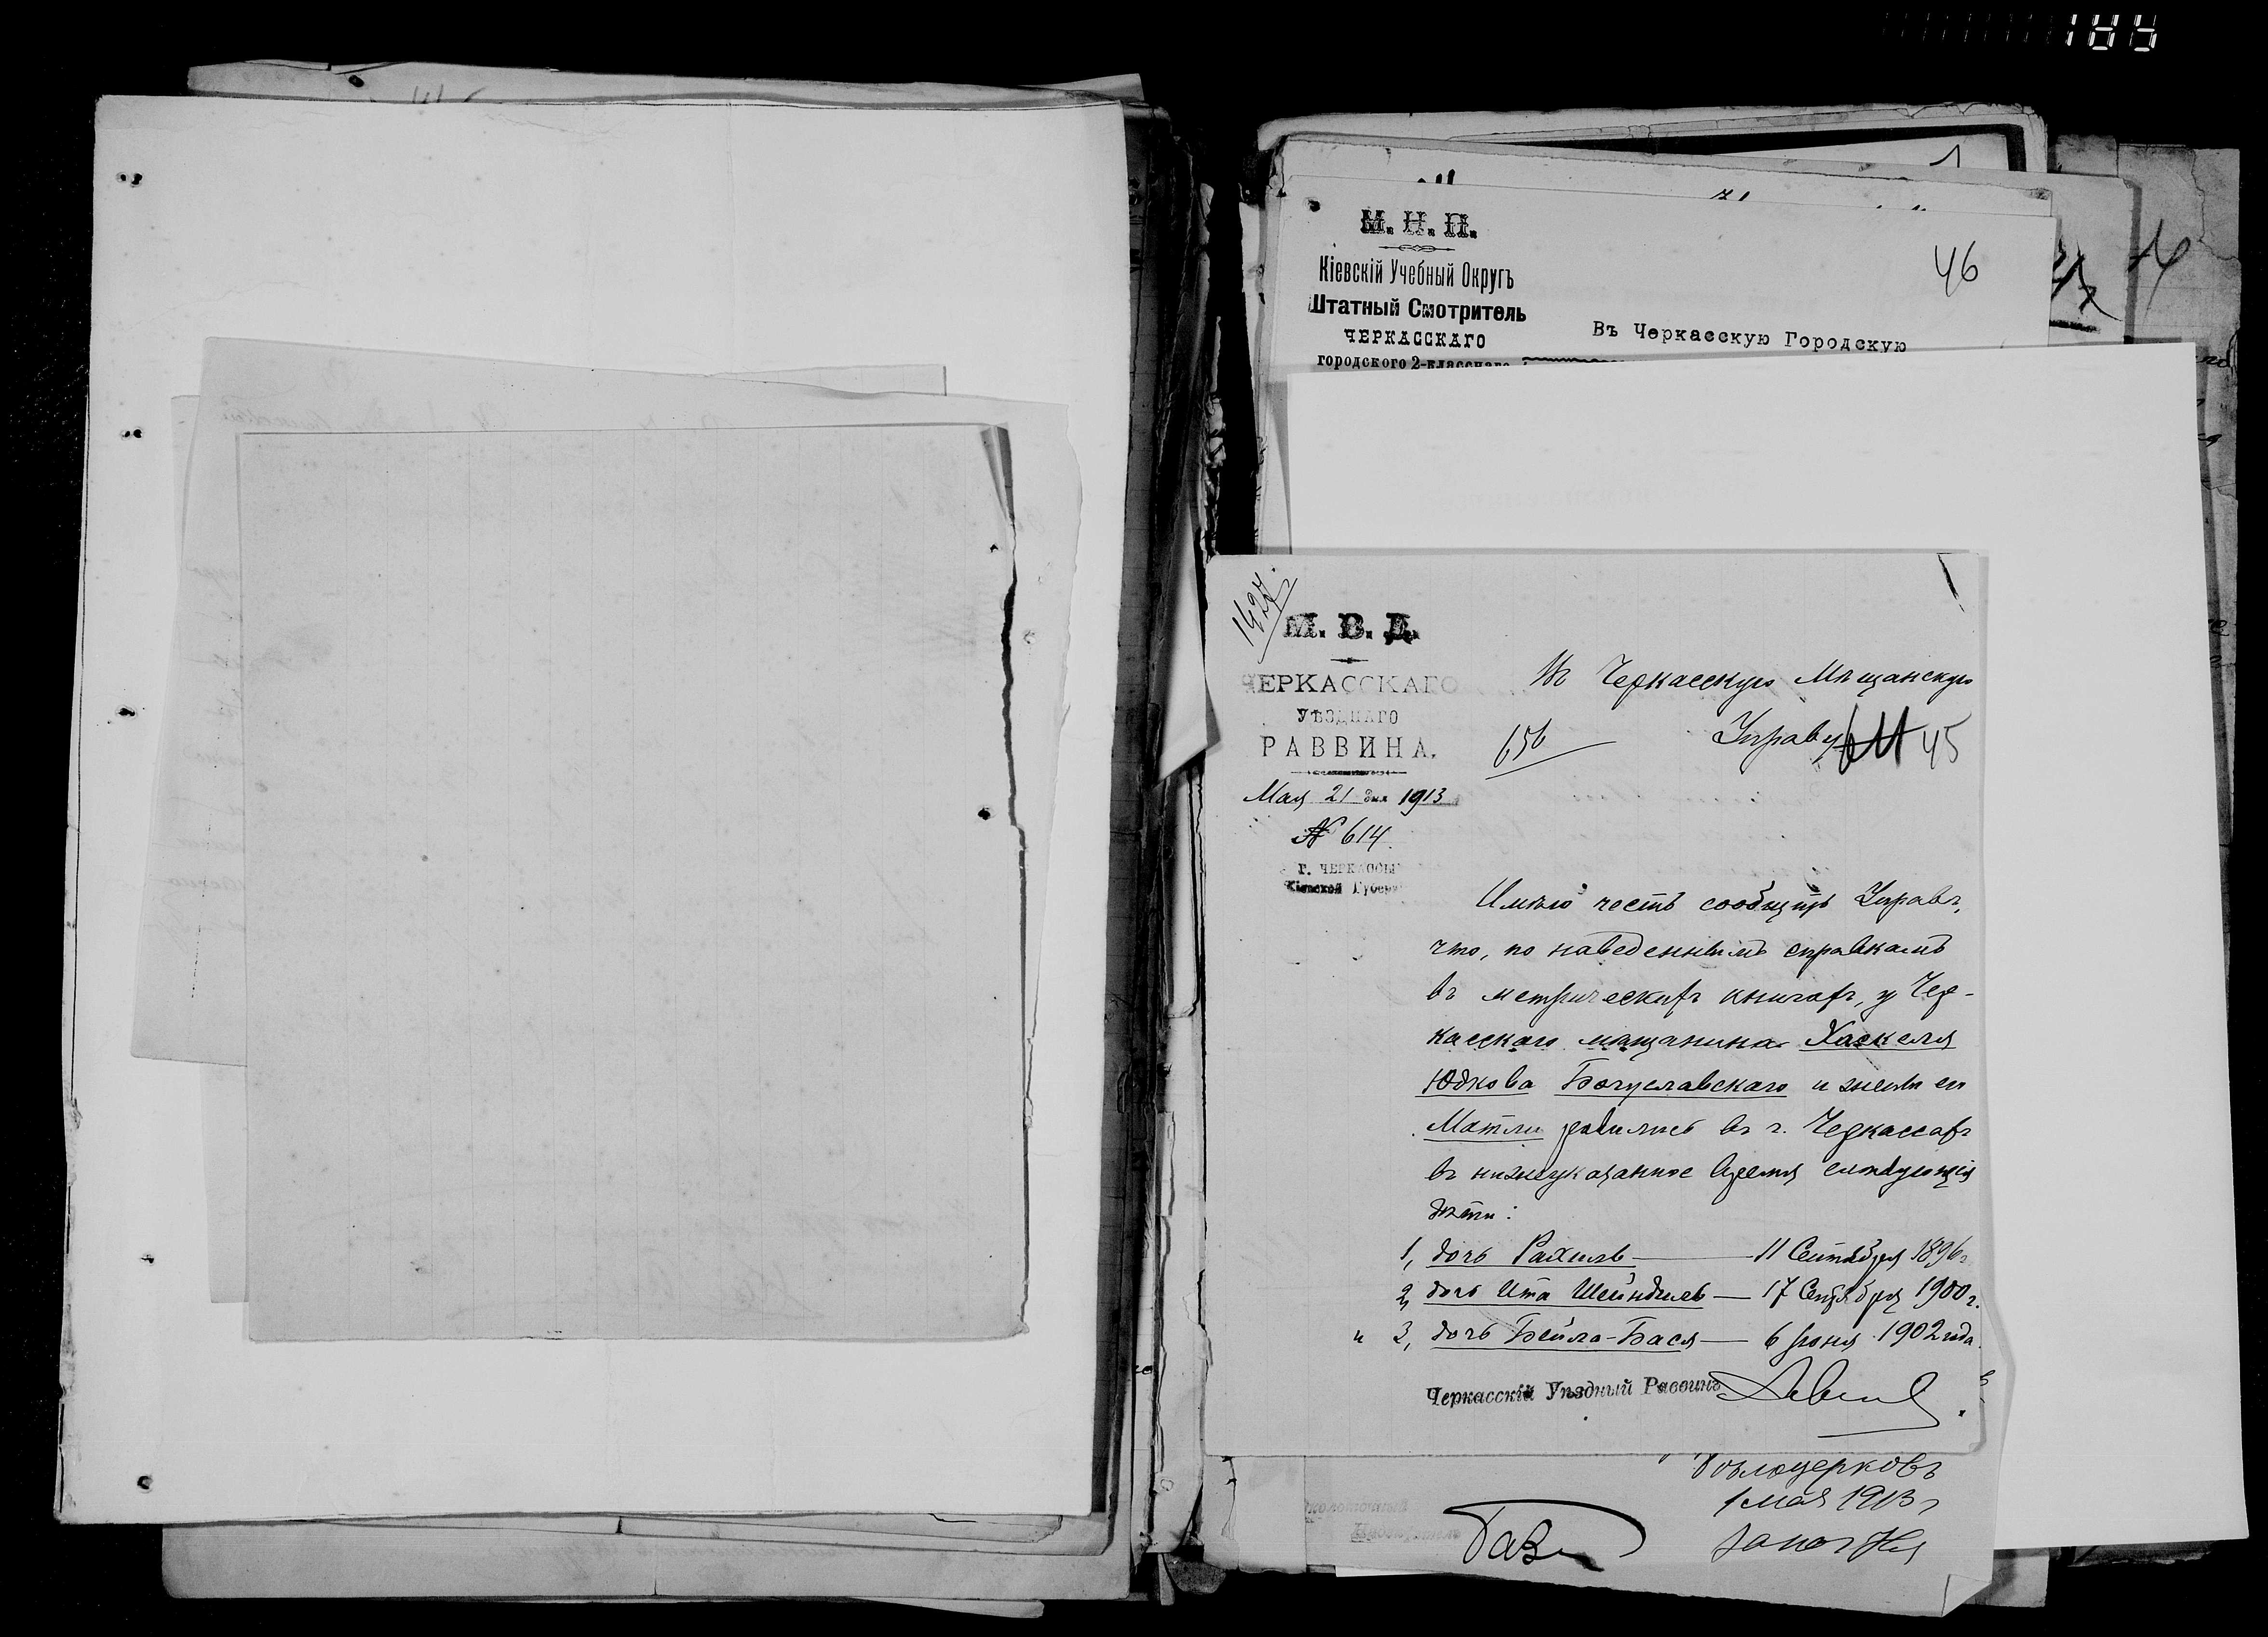 184
М. Н. П.
Кіевскій Учебный Округъ
Штатный Смотритель
ЧЕРКАССКАГО
городского 2-класснаго
46
Въ Черкасскую Городскую
1427
М. В. Д.
ЧЕРКАССКАГО
УѢЗДНАГО
РАВВИНА.
Мая 21 дня 1913
№ 614.
Г. ЧЕРКАССЫ
Кіевской Губерн
Въ Черкасскую Мѣщанскую
Управу
656
45
Имѣю честь сообщить Управѣ,
что, по наведеннымъ справкамъ
въ метрическихъ книгахъ, у Чер-
касскаго мѣщанина Хаскеля
Юдкова Богуславскаго и жены его
Матли родились въ г. Черкассахъ
въ нижеуказанное время слѣдующія
дѣти:
1, дочь Рахиль — 11 Сентября 1896 г.
2, дочь Ита Шейндиль — 17 Сентября 1900 г.
и 3, дочь Бейла-Бася — 6 Іюня 1902 года.
Черкасскій Уѣздный Раввинъ
1 мая 1913 г